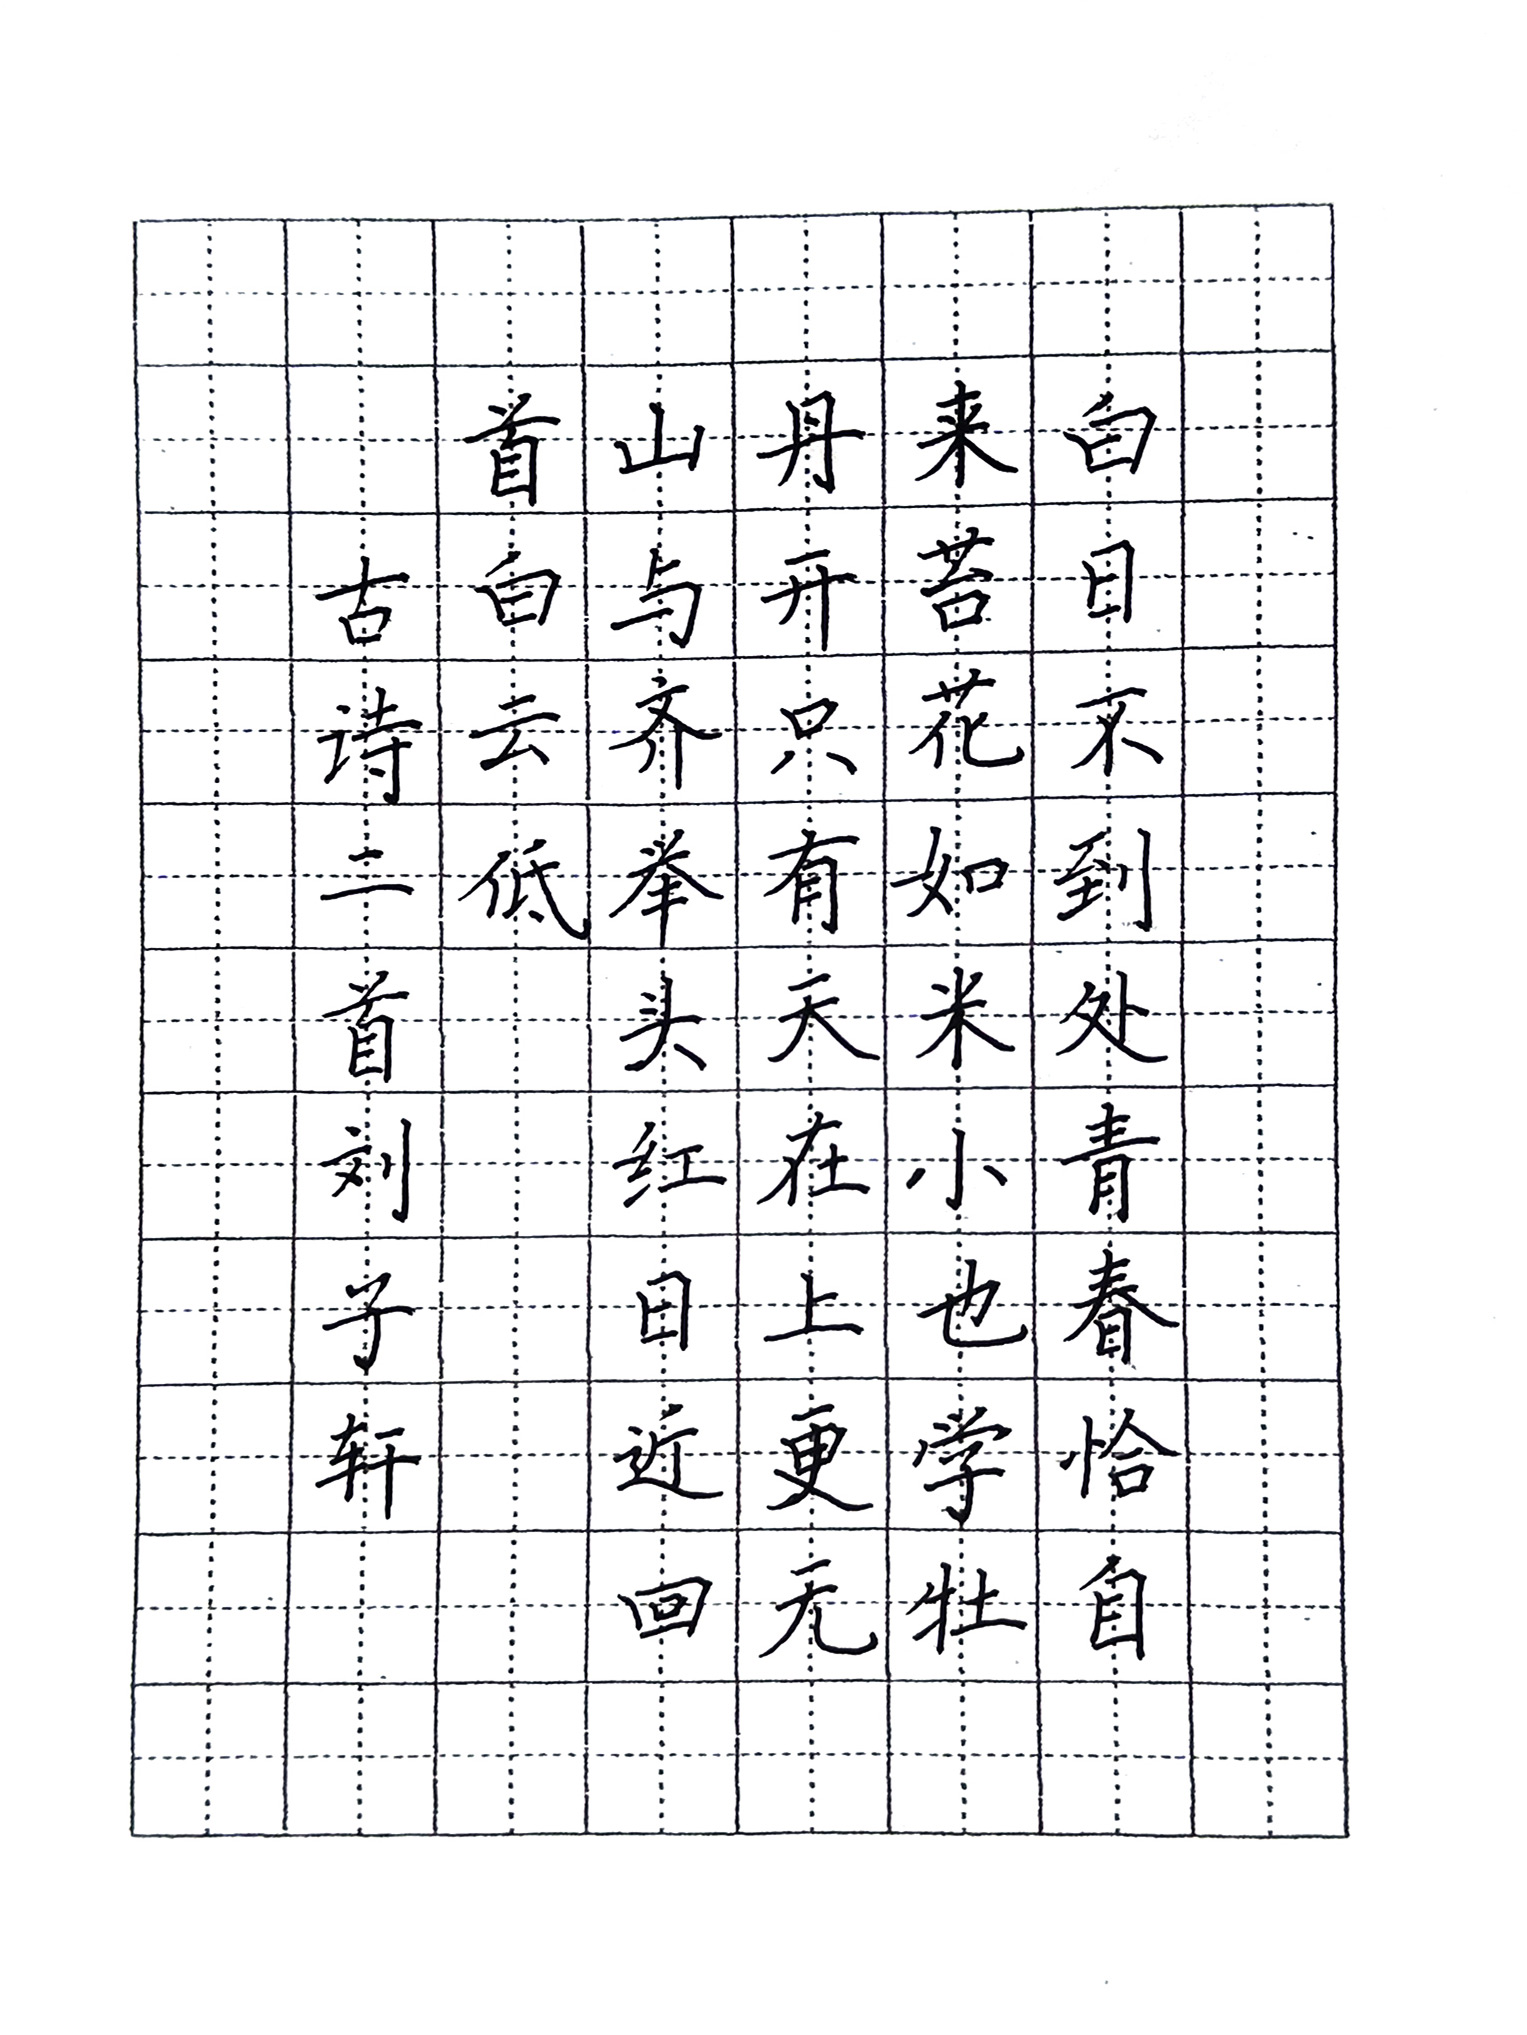 白日不到处青春恰自
来苔花如米小也学牡
丹开只有天在上更无
山与齐举头红日近回
首白云低
古诗二首刘子轩